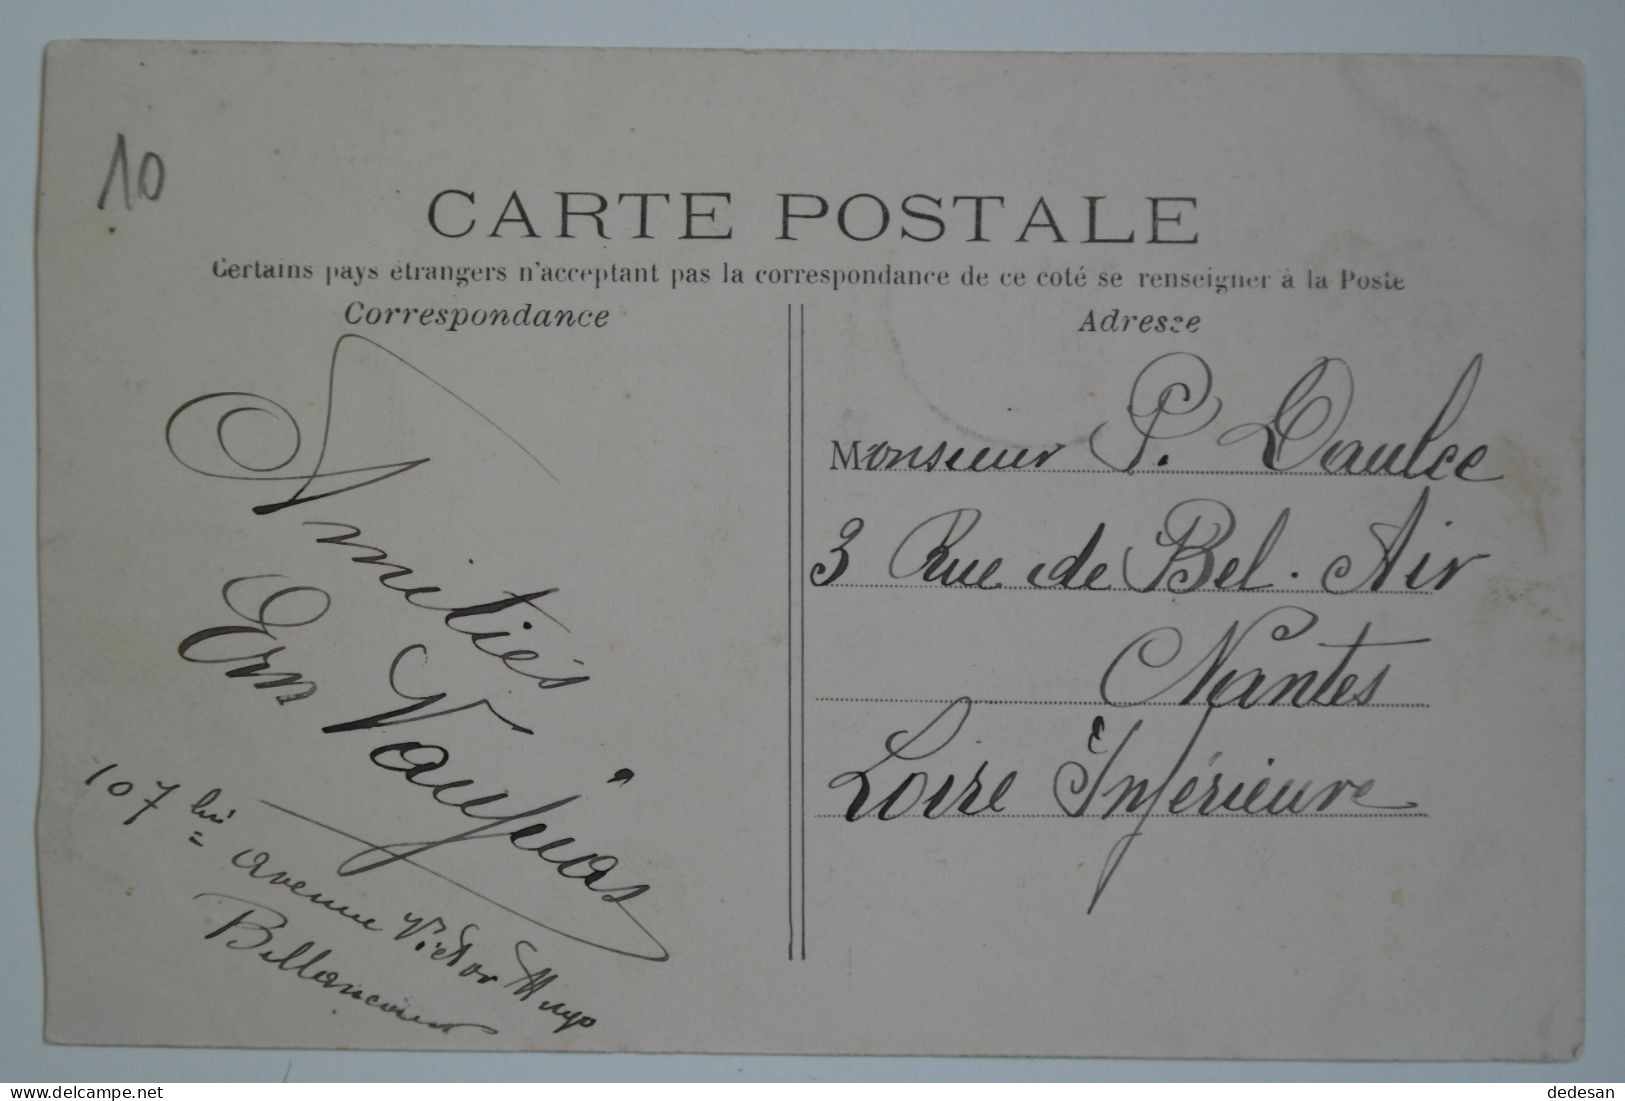 10
CARTE POSTALE
Certains pays étrangers n'acceptant pas la correspondance de ce coté se renseigner à la Poste
Correspondance
Amitiés
Ern
107 bis avenue Victor Hugo
Billancourt
Adresse
Monsieur P. Daulce
3 Rue de Bel. Air
Nantes
Loire Inférieure
dedesan